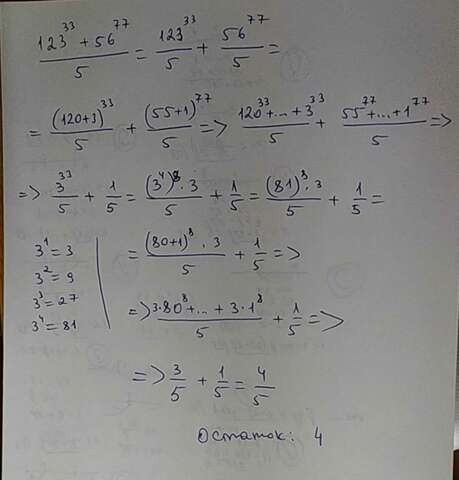 (123^33 + 56^77)/5 = 123^33/5 + 56^77/5 =
= (120+3)^33/5 + (55+1)^77/5 => (120^33 + ... + 3^33)/5 + (55^77 + ... + 1^77)/5 =>
=> 3^33/5 + 1/5 = ((3^4)^8 · 3)/5 + 1/5 = ((81)^8 · 3)/5 + 1/5 =
3^1 = 3
3^2 = 9
3^3 = 27
3^4 = 81
= ((80+1)^8 · 3)/5 + 1/5 =>
=> (3·80^8 + ... + 3·1^8)/5 + 1/5 =>
=> 3/5 + 1/5 = 4/5
Остаток: 4